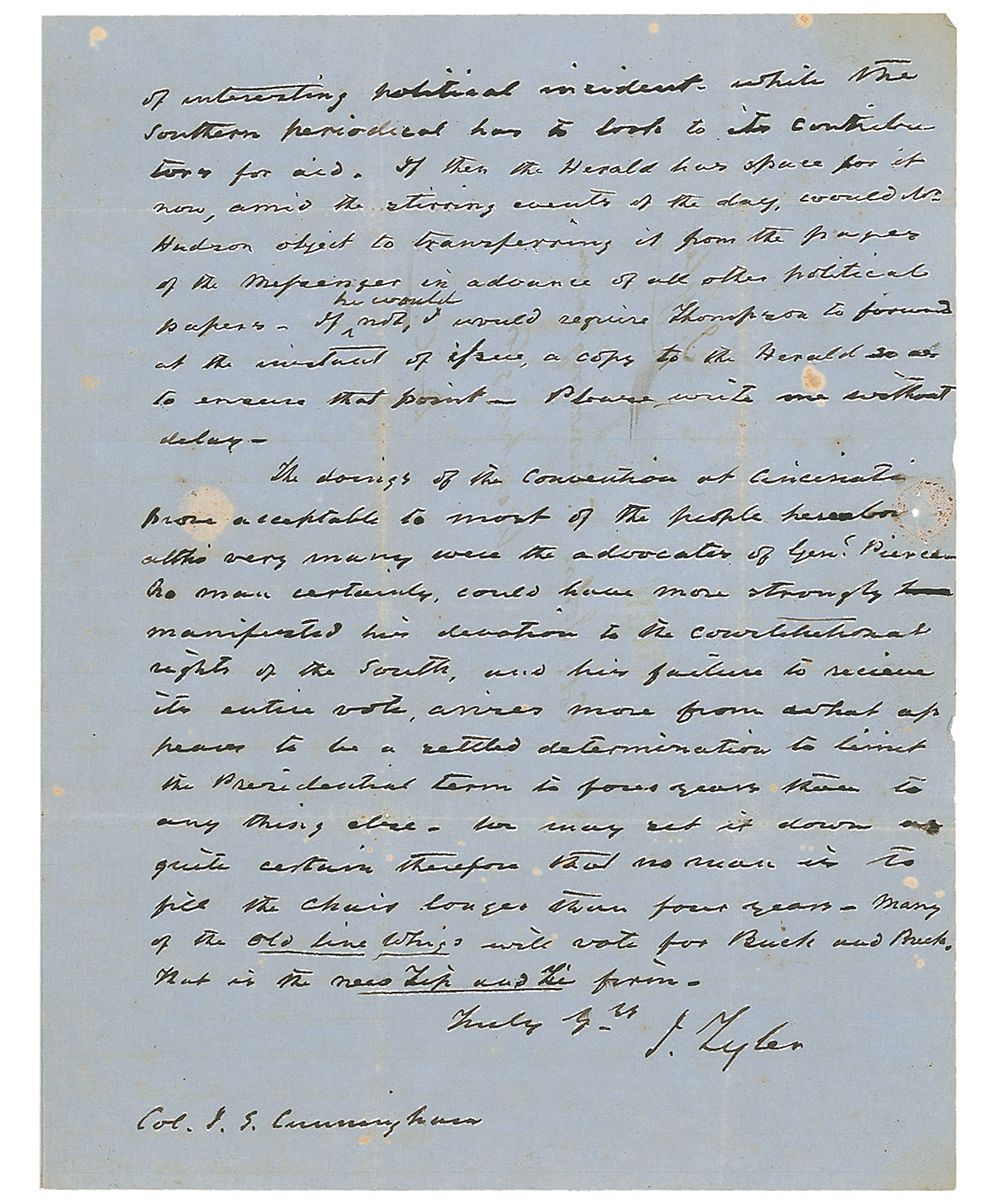 of interesting political incident - while the
Southern periodical has to look to its contribu
tors for aid. If then the Herald has space for it
now, amid the stirring events of the day, would Mr
Hudson object to transferring it from the pages
of the Messenger in advance of all other political
he would
papers - If not, I would require Thompson to forward
at the instant of issue, a copy to the Herald so as
to ensure that point - Please write me without
delay -
The doings of the Convention at Cincinati
prove acceptable to most of the people hereabou
altho very many were the advocates of Genl Pierce
No man certainly, could have more strongly
manifested his devotion to the constitutional
rights of the South, and his failure to recieve
its entire vote, arises more from what ap
pears to be a settled determination to limit
the Presidential term to four years than to
any thing else - We may set it down as
quite certain therefore that no man is to
fill the chair longer than four years - Many
of the old line Whigs will vote for Buck and Breck.
That is the new Tip and Ti firm -
Truly Yrs
J. Tyler
Col. J. S. Cunningham